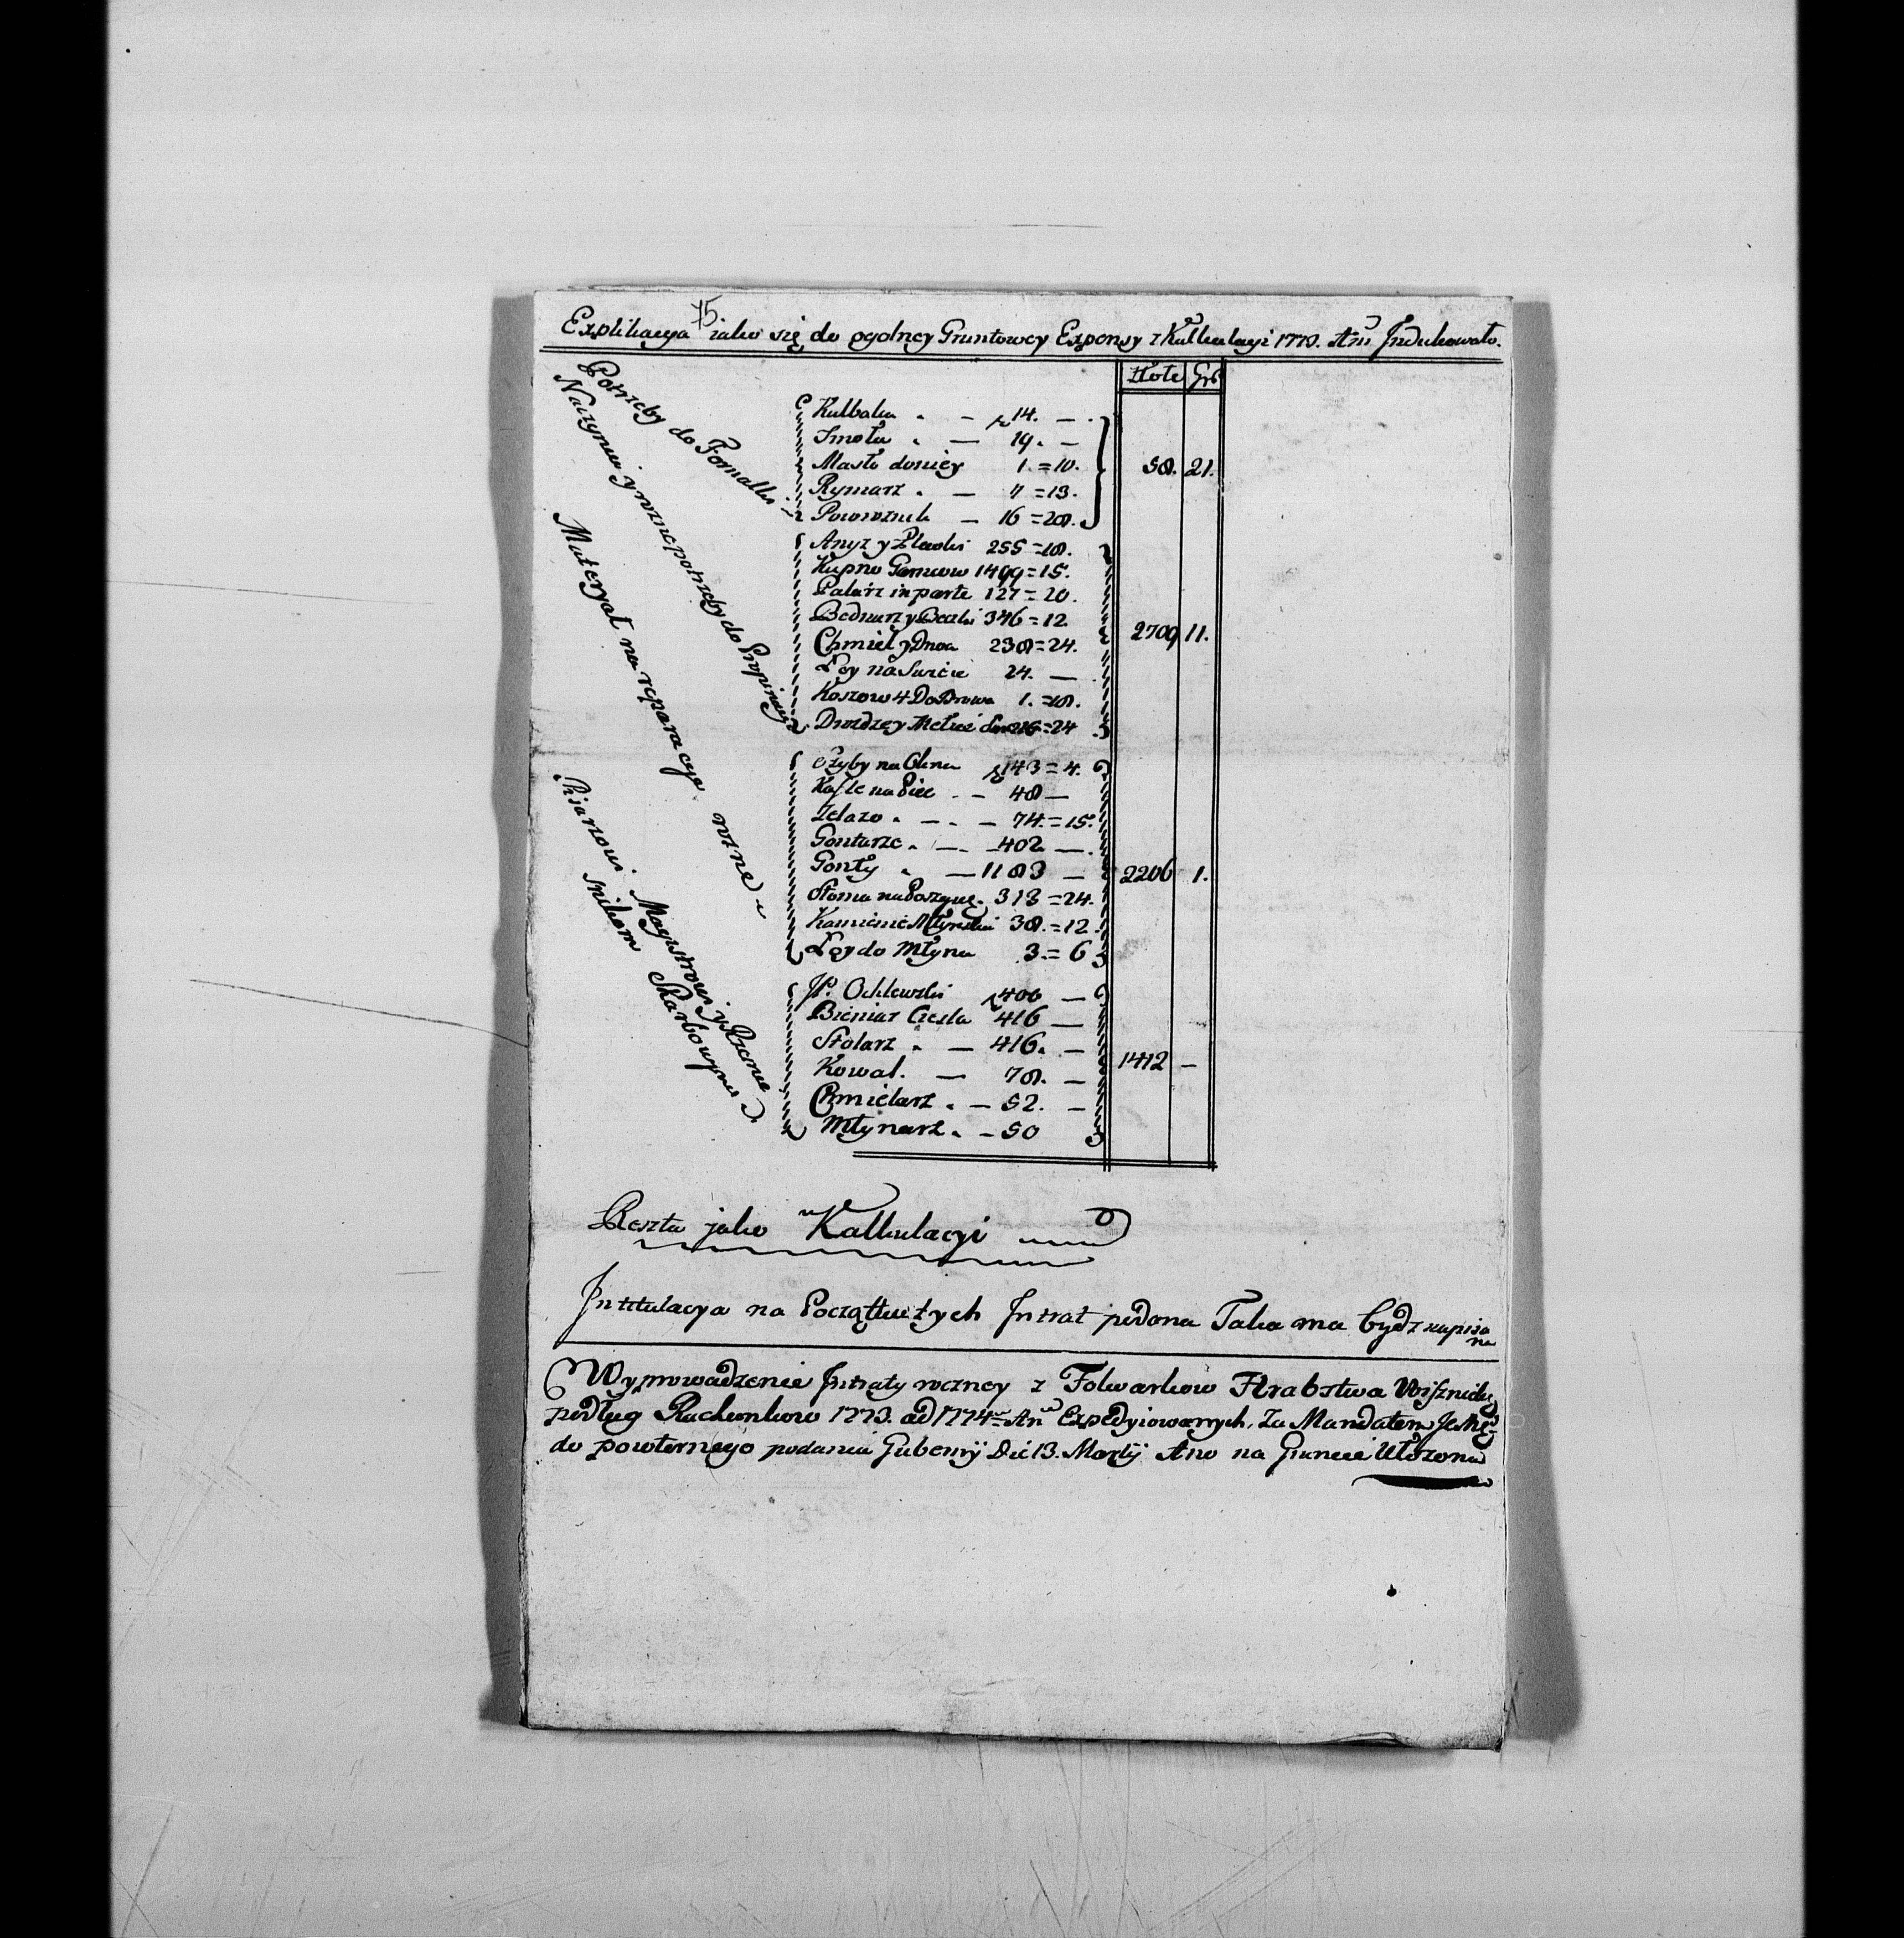 75.
Explikacya jako się do ogolney Gruntowey Expensy z Kalkulacyi 1773. Ani Indukowało.
Złote Grs
Potrzeby do Fornalki
Kulbaka 14. —
Smoła — 19. —
Masło doniey 1. = 10.
Rymarz — 7 = 13.
Powoznik — 16 = 28.
58. 21.
Naczynia y rozne potrzeby do Propinacyi
Anyz y 255 = 18.
Kupno Garncow 1499 = 15.
Palarz in parte 127 = 20.
Bednarz y Beczki 346 = 12.
Chmiel y Drwa 238 = 24.
Łoy na 24. —
Koszow 4 Do 1. = 18.
Drozdze y 216 = 24
2709 11.
Materyał na reparacye rozne
Szyby na Okna 143 = 4.
Kafle na Piec — 48 —
Zelazo — 74. = 15.
Gontarze — 402 —
Gonty — 1183 —
Słoma na Poszycie 313 = 24.
Kamienie Młynskie 38. = 12.
Łoy do Młyna 3. = 6
2206 1.
Pisarzowi Magistrowi y Rzemie
snikom Skarbowym
JP. Ochlewski 400 —
Bieniasz Ciesla 416 —
Stolarz — 416. —
Kowal. — 78. —
Chmielarz — 52. —
Młynarz — 50
1412 —
Reszta jako w Kalkulacyi
Intitulacya na Początku tych Intrat podana Taka ma bydz napisa
na
Wyprowadzenie Intraty roczney z Folwarkow Hrabstwa
podług Rachunkow 1773. ad 1774 An Expedyiowanych, Za Mandatem
do powternego podania Gubernij Die 13. Martij Ano na Gruncie Ułozona